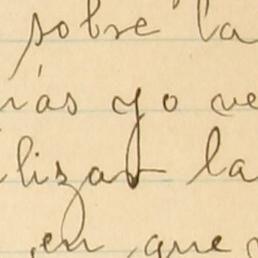 sobre la
rás yo ve
lizar la
en que